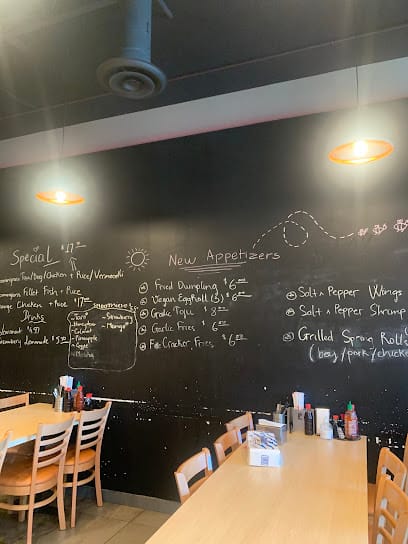 Special $17
Tofu/Beef/Chicken + Rice/Vermicelli
Fillet Fish + Rice
Chicken + Rice $17.00
Drinks
$4.97
Lemonade $5.50
Smoothies
- Taro
- Honeydew
- Coconut
- Pineapple
- Strawberry
- Mango
New Appetizers
Fried Dumpling $6.00
Vegan EggRoll (3) $6.00
Garlic Tofu $8.00
Garlic Fries $6.00
Cracker Fries $6.00
Salt & Pepper Wings
Salt & Pepper Shrimp
Grilled Spring Rolls
(beef/pork/chicke